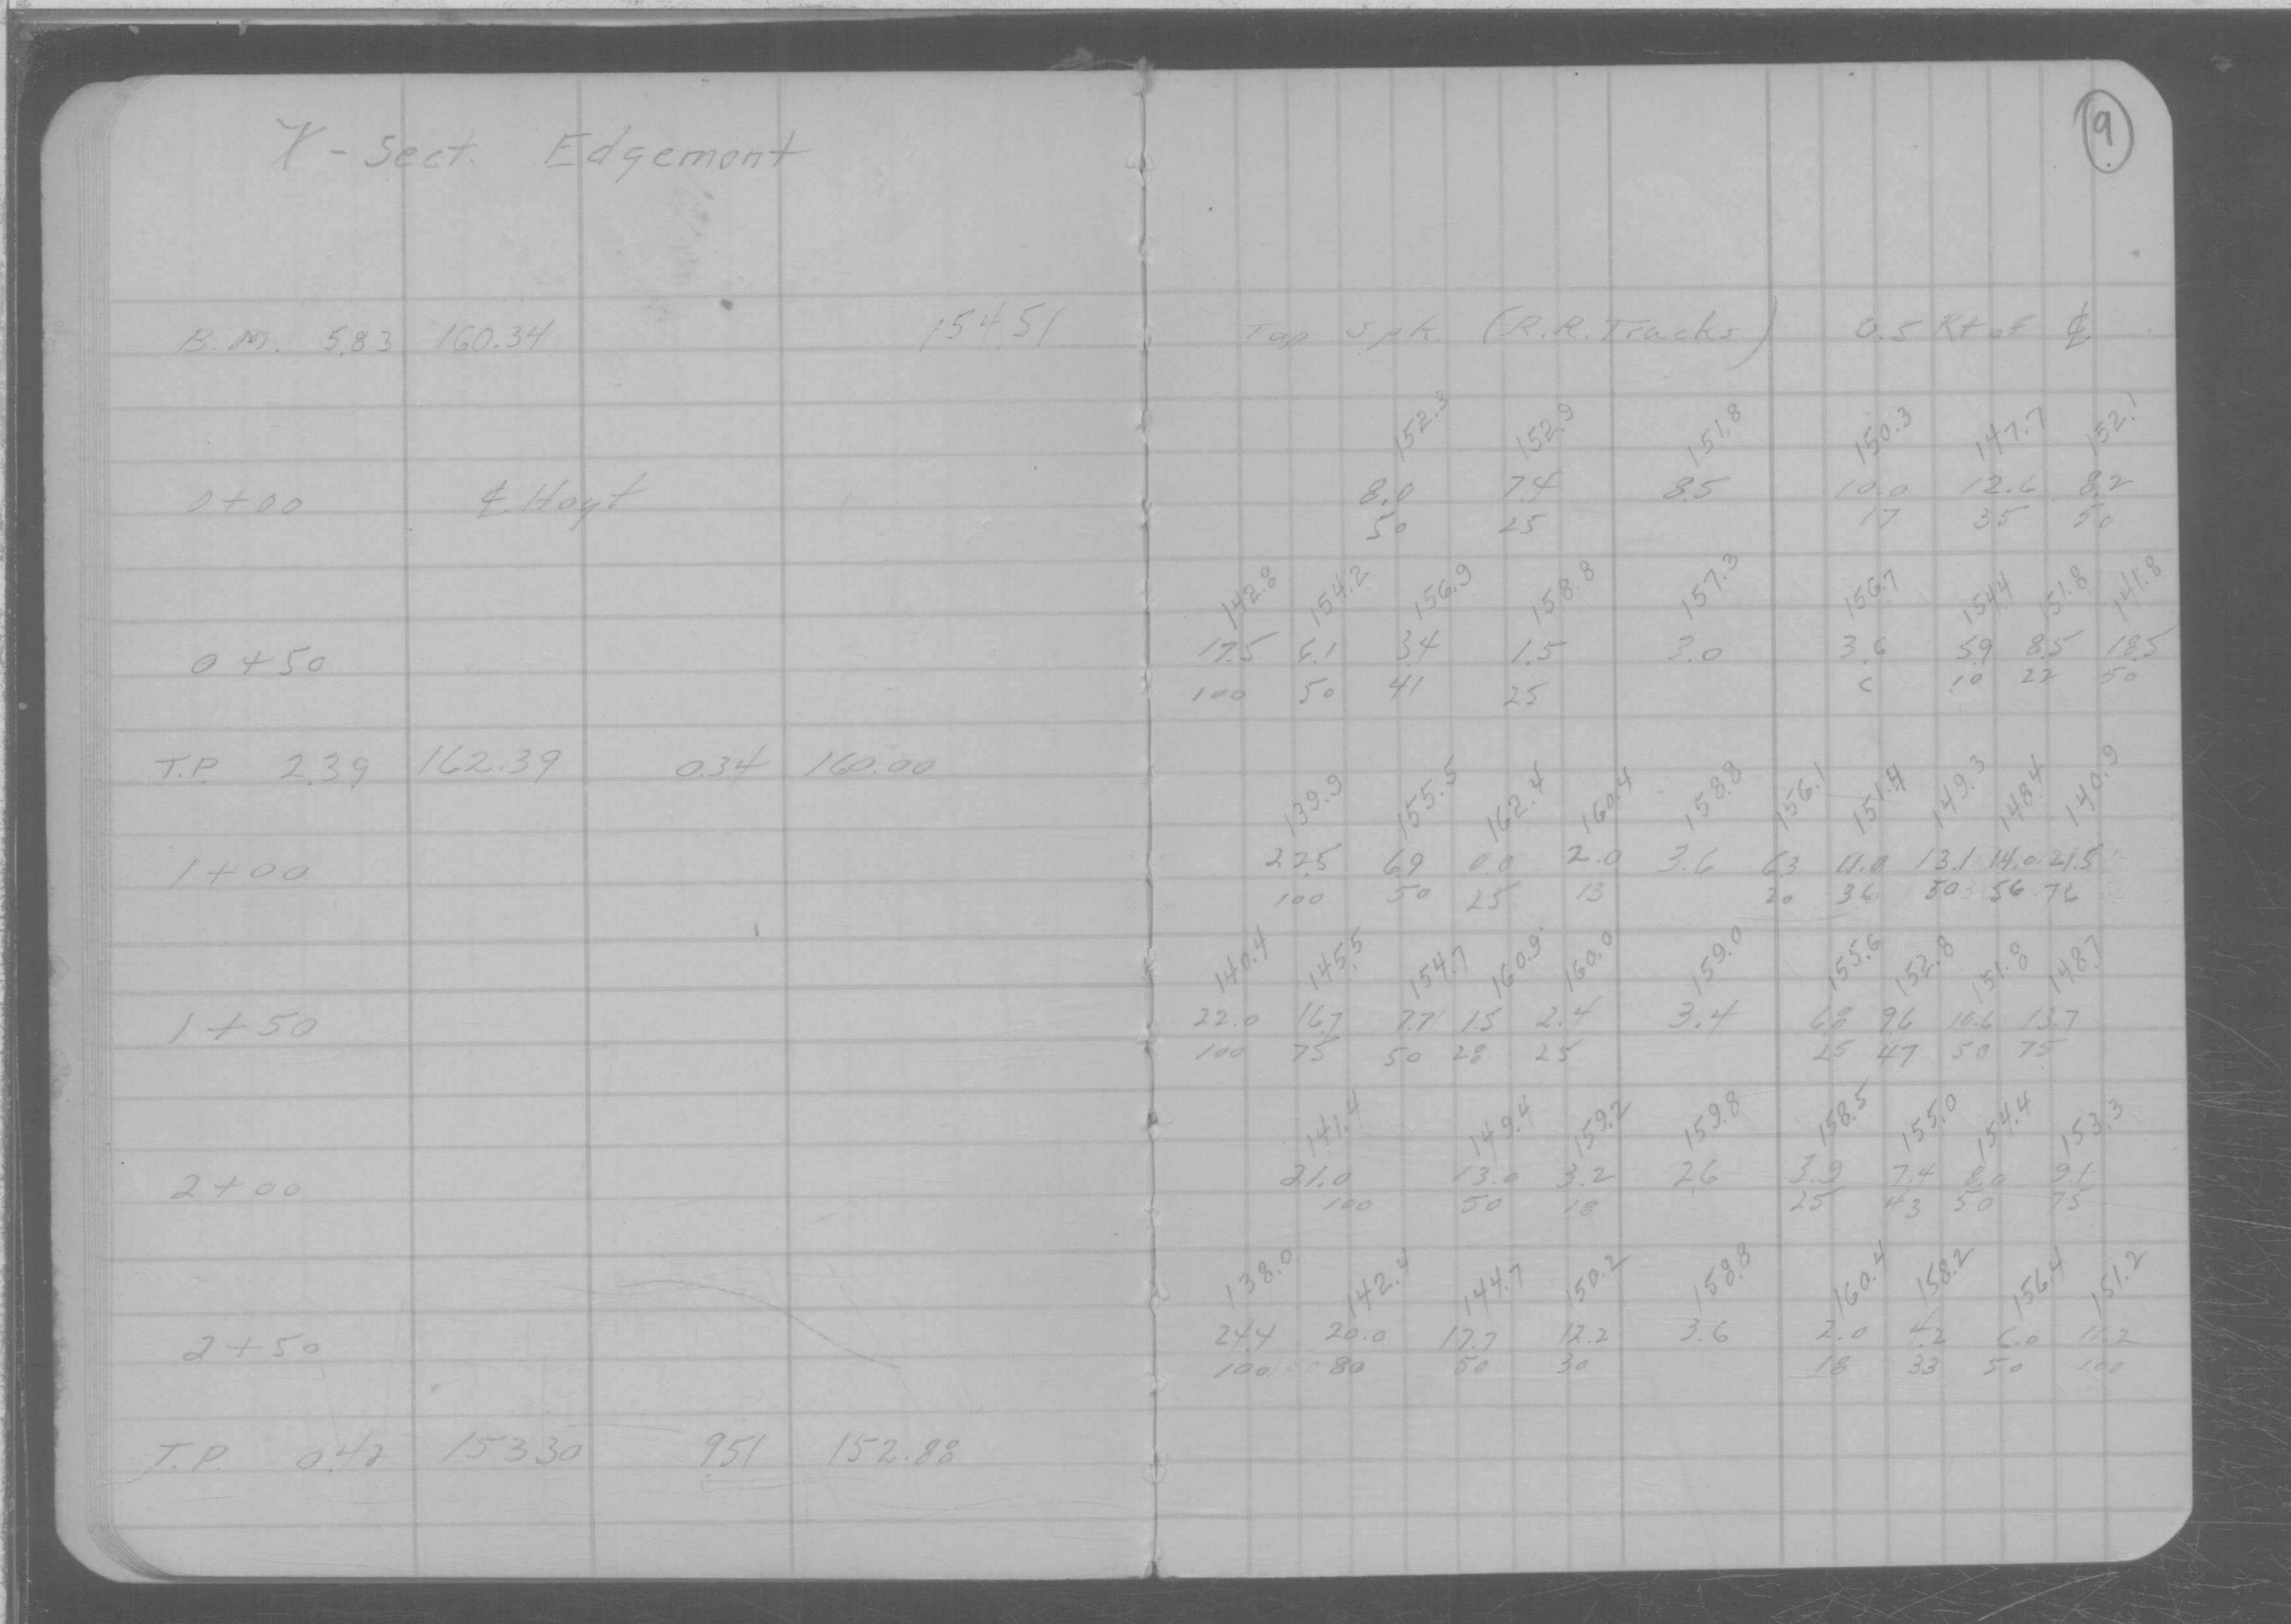 X-Sect. Edgemont
9
B.M. 5.83 160.34 154.51 Top Spk. (R.R. Tracks) 0.5 Rt of ℄
152.3 152.9 151.8 150.3 147.7 152.1
0+00 ℄ Hoyt 8.0 7.4 8.5 10.0 12.6 8.2
50 25 17 35 50
142.8 154.2 156.9 158.8 157.3 156.7 154.4 151.8 141.8
0+50 17.5 6.1 3.4 1.5 3.0 3.6 5.9 8.5 18.5
100 50 41 25 10 22 50
T.P. 2.39 162.39 0.34 160.00
139.9 155.5 162.4 160.4 158.8 156.1 151.4 149.3 148.4 140.9
1+00 22.5 6.9 0.0 2.0 3.6 6.3 11.0 13.1 14.0 21.5
100 50 25 13 20 36 50 56 76
140.4 145.5 154.7 160.9 160.0 159.0 155.6 152.8 151.8 148.7
1+50 22.0 16.7 7.7 1.5 2.4 3.4 6.8 9.6 10.6 13.7
100 75 50 28 25 25 47 50 75
141.4 149.4 159.2 159.8 158.5 155.0 154.4 153.3
2+00 21.0 13.0 3.2 2.6 3.9 7.4 8.0 9.1
100 50 18 25 43 50 75
138.0 142.4 144.7 150.2 158.8 160.4 158.2 156.4 151.2
2+50 24.4 20.0 17.7 12.2 3.6 2.0 4.2 6.0 11.2
100 80 50 30 18 33 50 100
T.P. 0.42 153.30 9.51 152.88